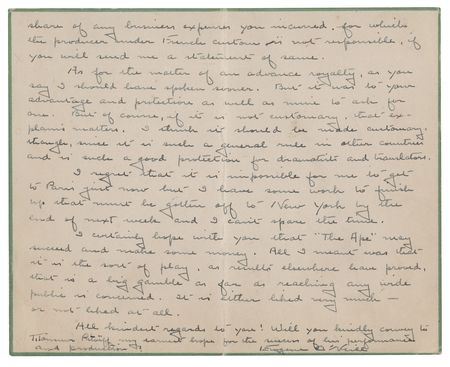 share of any business expenses you incurred, for which
the producer under French custom is not responsible, if
you will send me a statement of same.
As for the matter of an advance royalty, as you
say I should have spoken sooner. But it was to your
advantage and protection as well as mine to ask for
one. But of course, if it is not customary, that ex-
plains matters. I think it should be made customary,
though, since it is such a general rule in other countries
and is such a good protection for dramatists and translators.
I regret that it is impossible for me to get
to Paris just now but I have some work to finish
up that must be gotten off to New York by the
end of next week and I can't spare the time.
I certainly hope with you that "The Ape" may
succeed and make some money. All I meant was that
it is the sort of play, as results elsewhere have proved,
that is a big gamble as far as reaching any wide
public is concerned. It is either liked very much —
or not liked at all.
All kindest regards to you! Will you kindly convey to
Pitoëff my earnest hope for the success of his performance
and production?
Eugene O'Neill